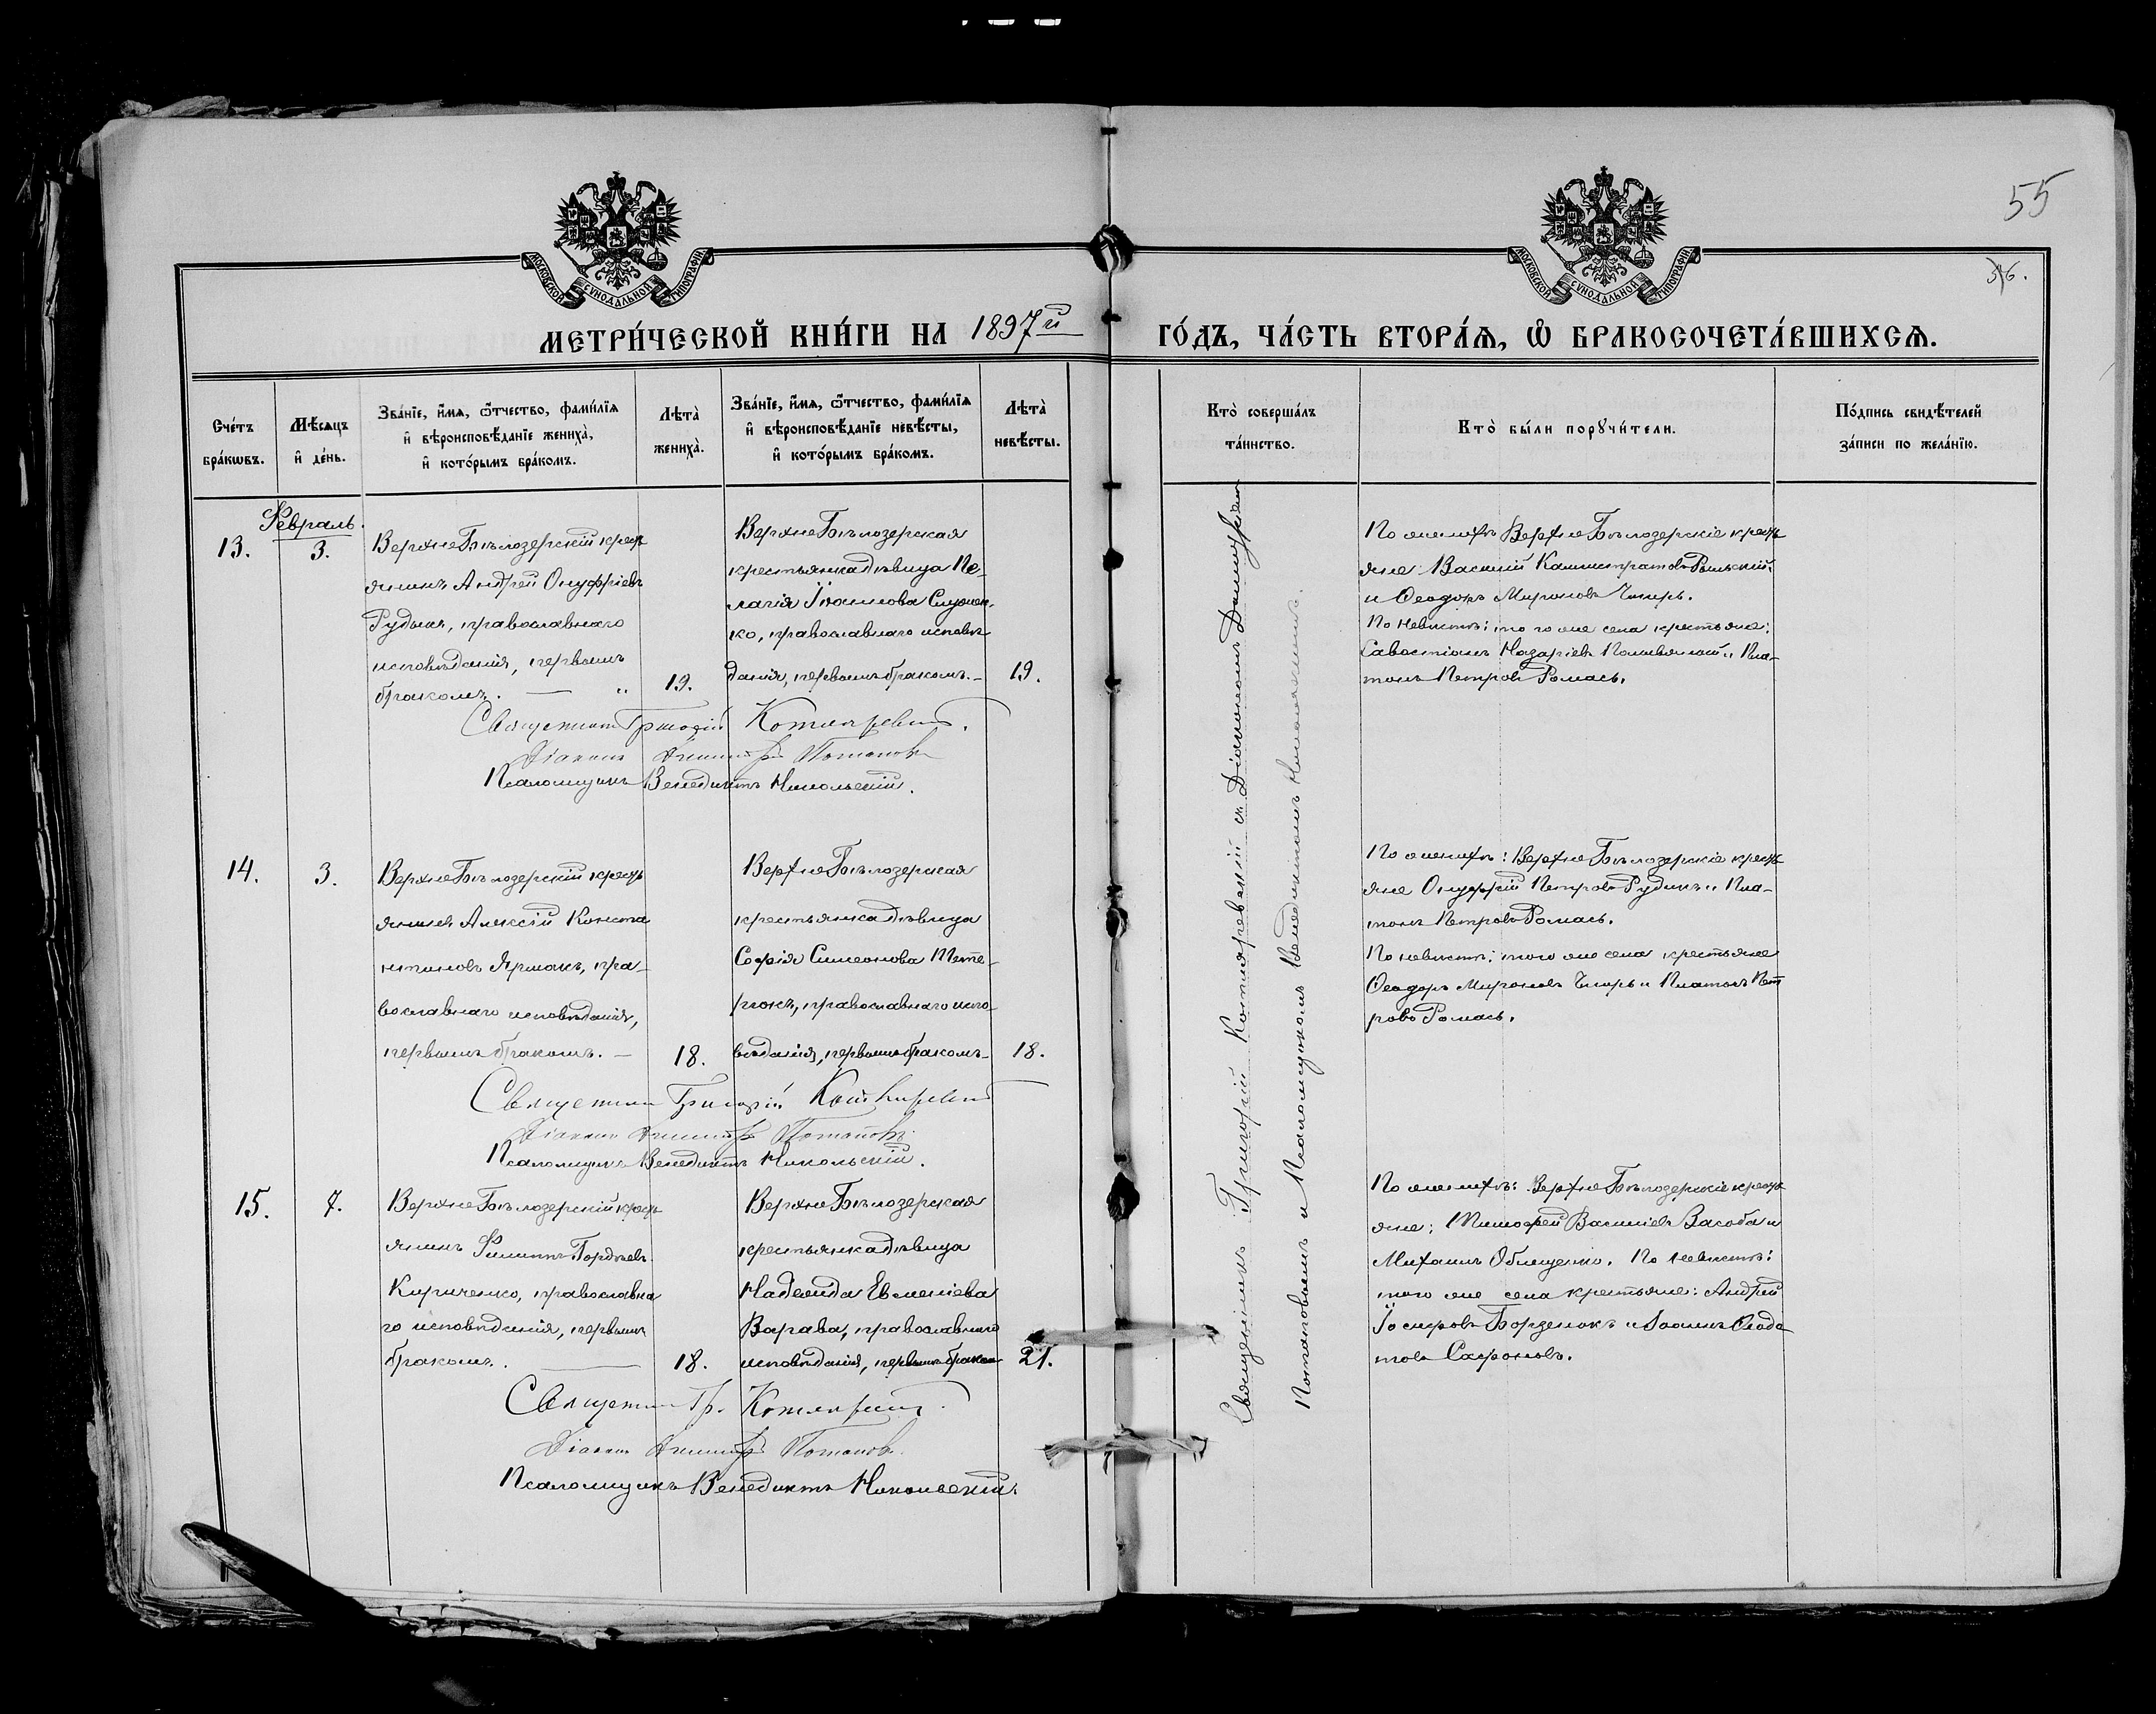 55
56.
МОСКОВСКОЙ СѴНОДАЛЬНОЙ ТИПОГРАФІИ
МОСКОВСКОЙ СѴНОДАЛЬНОЙ ТИПОГРАФІИ
МЕТРИ́ЧЕСКОЙ КНИ́ГИ НА 1897й ГО́ДЪ, ЧА́СТЬ ВТОРА́Ѧ, Ѿ БРАКОСОЧЕТА́ВШИХСѦ.
Сче́тъ
бра́кѡвъ.
Мѣ́сѧцъ
и҆ де́нь.
Зва́нїе, и҆́мѧ, ѻ҆́тчество, фами́лїѧ
и҆ вѣроисповѣ́данїе жениха̀,
и҆ кото́рымъ бра́комъ.
Лѣта̀
жениха̀.
Зва́нїе, и҆́мѧ, ѻ҆́тчество, фами́лїѧ
и҆ вѣроисповѣ́данїе невѣ́сты,
и҆ кото́рымъ бра́комъ.
Лѣта̀
невѣ́сты.
Кто̀ соверша́лъ
та́инство.
Кто̀ бы́ли порꙋчи́тели.
По́дпись свидѣ́телей
за́писи по жела́нїю.
Февраль.
13.
3.
ВерхнеБѣлозерскій крест
янинъ Андрей Онуфріевъ
Рудыкъ, православнаго
исповѣданія, первымъ
бракомъ. — "
19.
ВерхнеБѣлозерская
крестьянка дѣвица Пе-
лагія Іоаннова
ко, православнаго исповѣ
данія, первымъ бракомъ. -
19.
По женихѣ ВерхнеБѣлозерскіе крест
яне: Василій Каллистратовъ
и Ѳеодоръ Мироновъ Чмирь.
По невѣстѣ: того же села крестьяне:
Савостіанъ Назаріевъ и Пла-
тонъ Петровъ Ромась.
Священникъ Григорій Котляревскій.
Діаконъ Димитрій Потаповъ
Псаломщикъ Венедиктъ Никольскій.
14.
3.
ВерхнеБѣлозерскій крест
янинъ Алексій Конста
нтиновъ Ярмакъ, пра-
вославнаго исповѣданія,
первымъ бракомъ. —
18.
ВерхнеБѣлозерская
крестьянка дѣвица
Софія Симеонова Тете-
рюкъ, православнаго испо-
вѣданія, первымъ бракомъ-
18.
По женихѣ: ВерхнеБѣлозерскіе крест
яне Онуфрій Петровъ Рудыкъ и Пла-
тонъ Петровъ Ромась.
По невѣстѣ: того же села крестьяне
Ѳеодоръ Мироновъ Чмирь и Платонъ Пет
ровъ Ромась.
Священникъ Григорій Котляревскій
Діаконъ Димитрій Потаповъ.
Псаломщикъ Венедиктъ Никольскій.
15.
7.
ВерхнеБѣлозерскій крест
янинъ Филиппъ Гордѣевъ
Кириченко, православна
го исповѣданія, первымъ
бракомъ. —
18.
ВерхнеБѣлозерская
крестьянка дѣвица
Надежда Евменіева
Варава, православнаго
исповѣданія, первымъ браком
21.
По женихѣ: ВерхнеБѣлозерскіе крест
яне: Тимофей Василіевъ Засоба и
Михаилъ Облещенко. По невѣстѣ:
того же села крестьяне: Андрей
Іосифовъ Борзенокъ и Іоаннъ
Сафоновъ.
Священникъ Гр. Котляревскій.
Діаконъ Димитрій Потаповъ.
Псаломщикъ Венедиктъ Никольскій.
Священникъ Григорій Котляревскій съ Діакономъ Димитріемъ
Потаповымъ и Псаломщикомъ Венедиктомъ Никольскимъ.